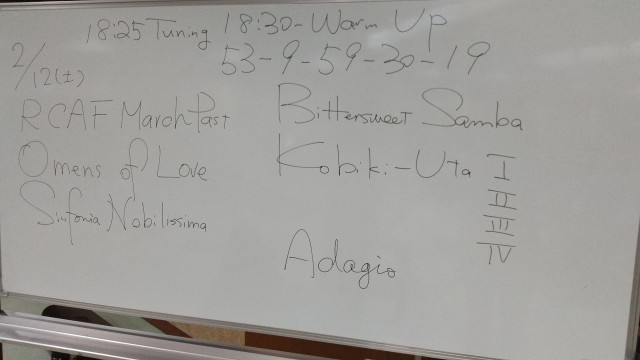 18:25 Tuning 18:30- Warm Up
2/12(土)
53-9-59-30-19
RCAF March Past
Omens of Love
Sinfonia Nobilissima
Bittersweet Samba
Kobiki-Uta I
II
III
IV
Adagio